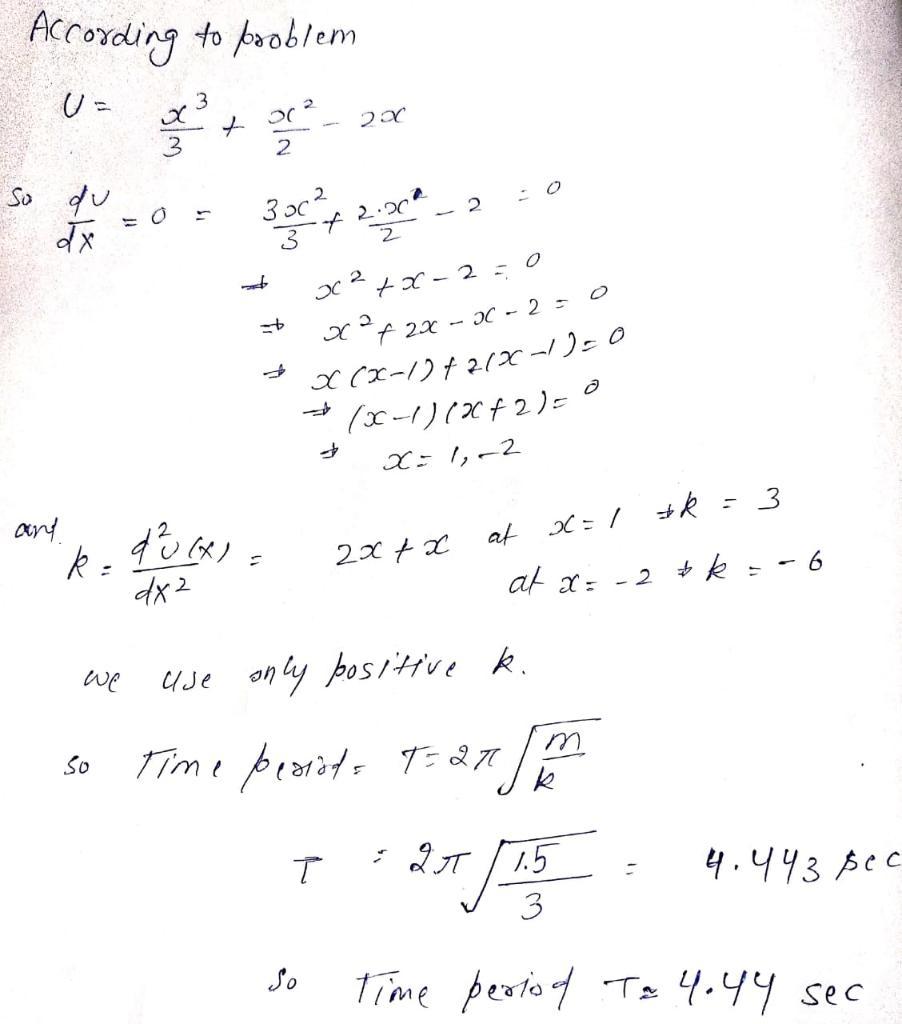 According to problem
U = x³/3 + x²/2 - 2x
So dU/dx = 0 = 3x²/3 + 2·x/2 - 2 = 0
⇒ x² + x - 2 = 0
⇒ x² + 2x - x - 2 = 0
⇒ x(x-1) + 2(x-1) = 0
⇒ (x-1)(x+2) = 0
⇒ x = 1, -2
and k = d²U(x)/dx² = 2x + x at x = 1 ⇒ k = 3
at x = -2 ⇒ k = -6
we use only positive k.
so Time period = T = 2π √(m/k)
T = 2π √(1.5/3) = 4.443 sec
So Time period T ≈ 4.44 sec